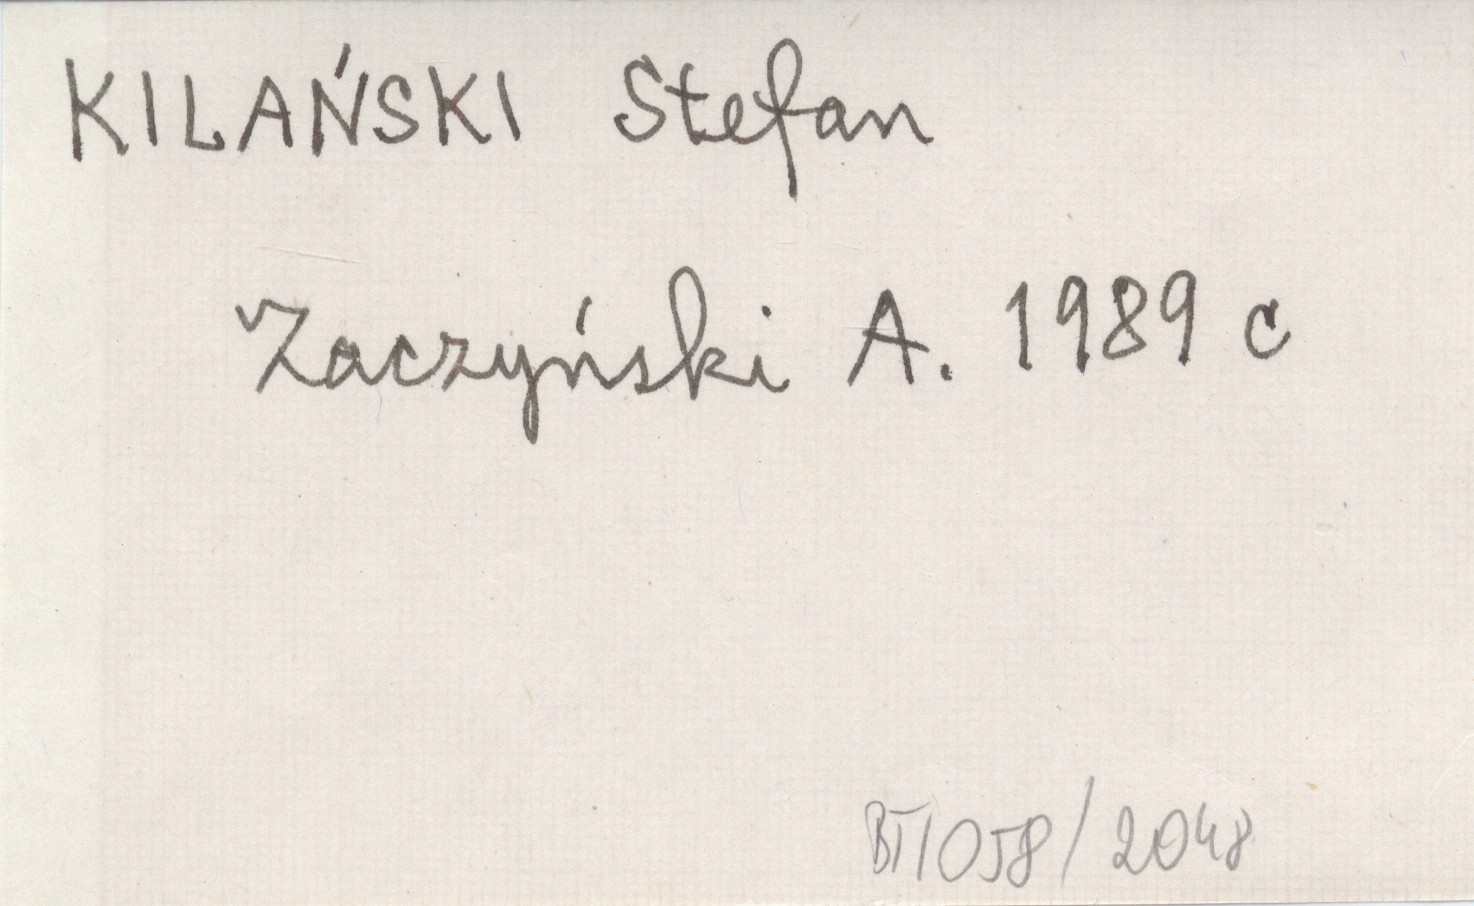 KILAŃSKI Stefan
Zaczyński A. 1989 c
BT/058/2048